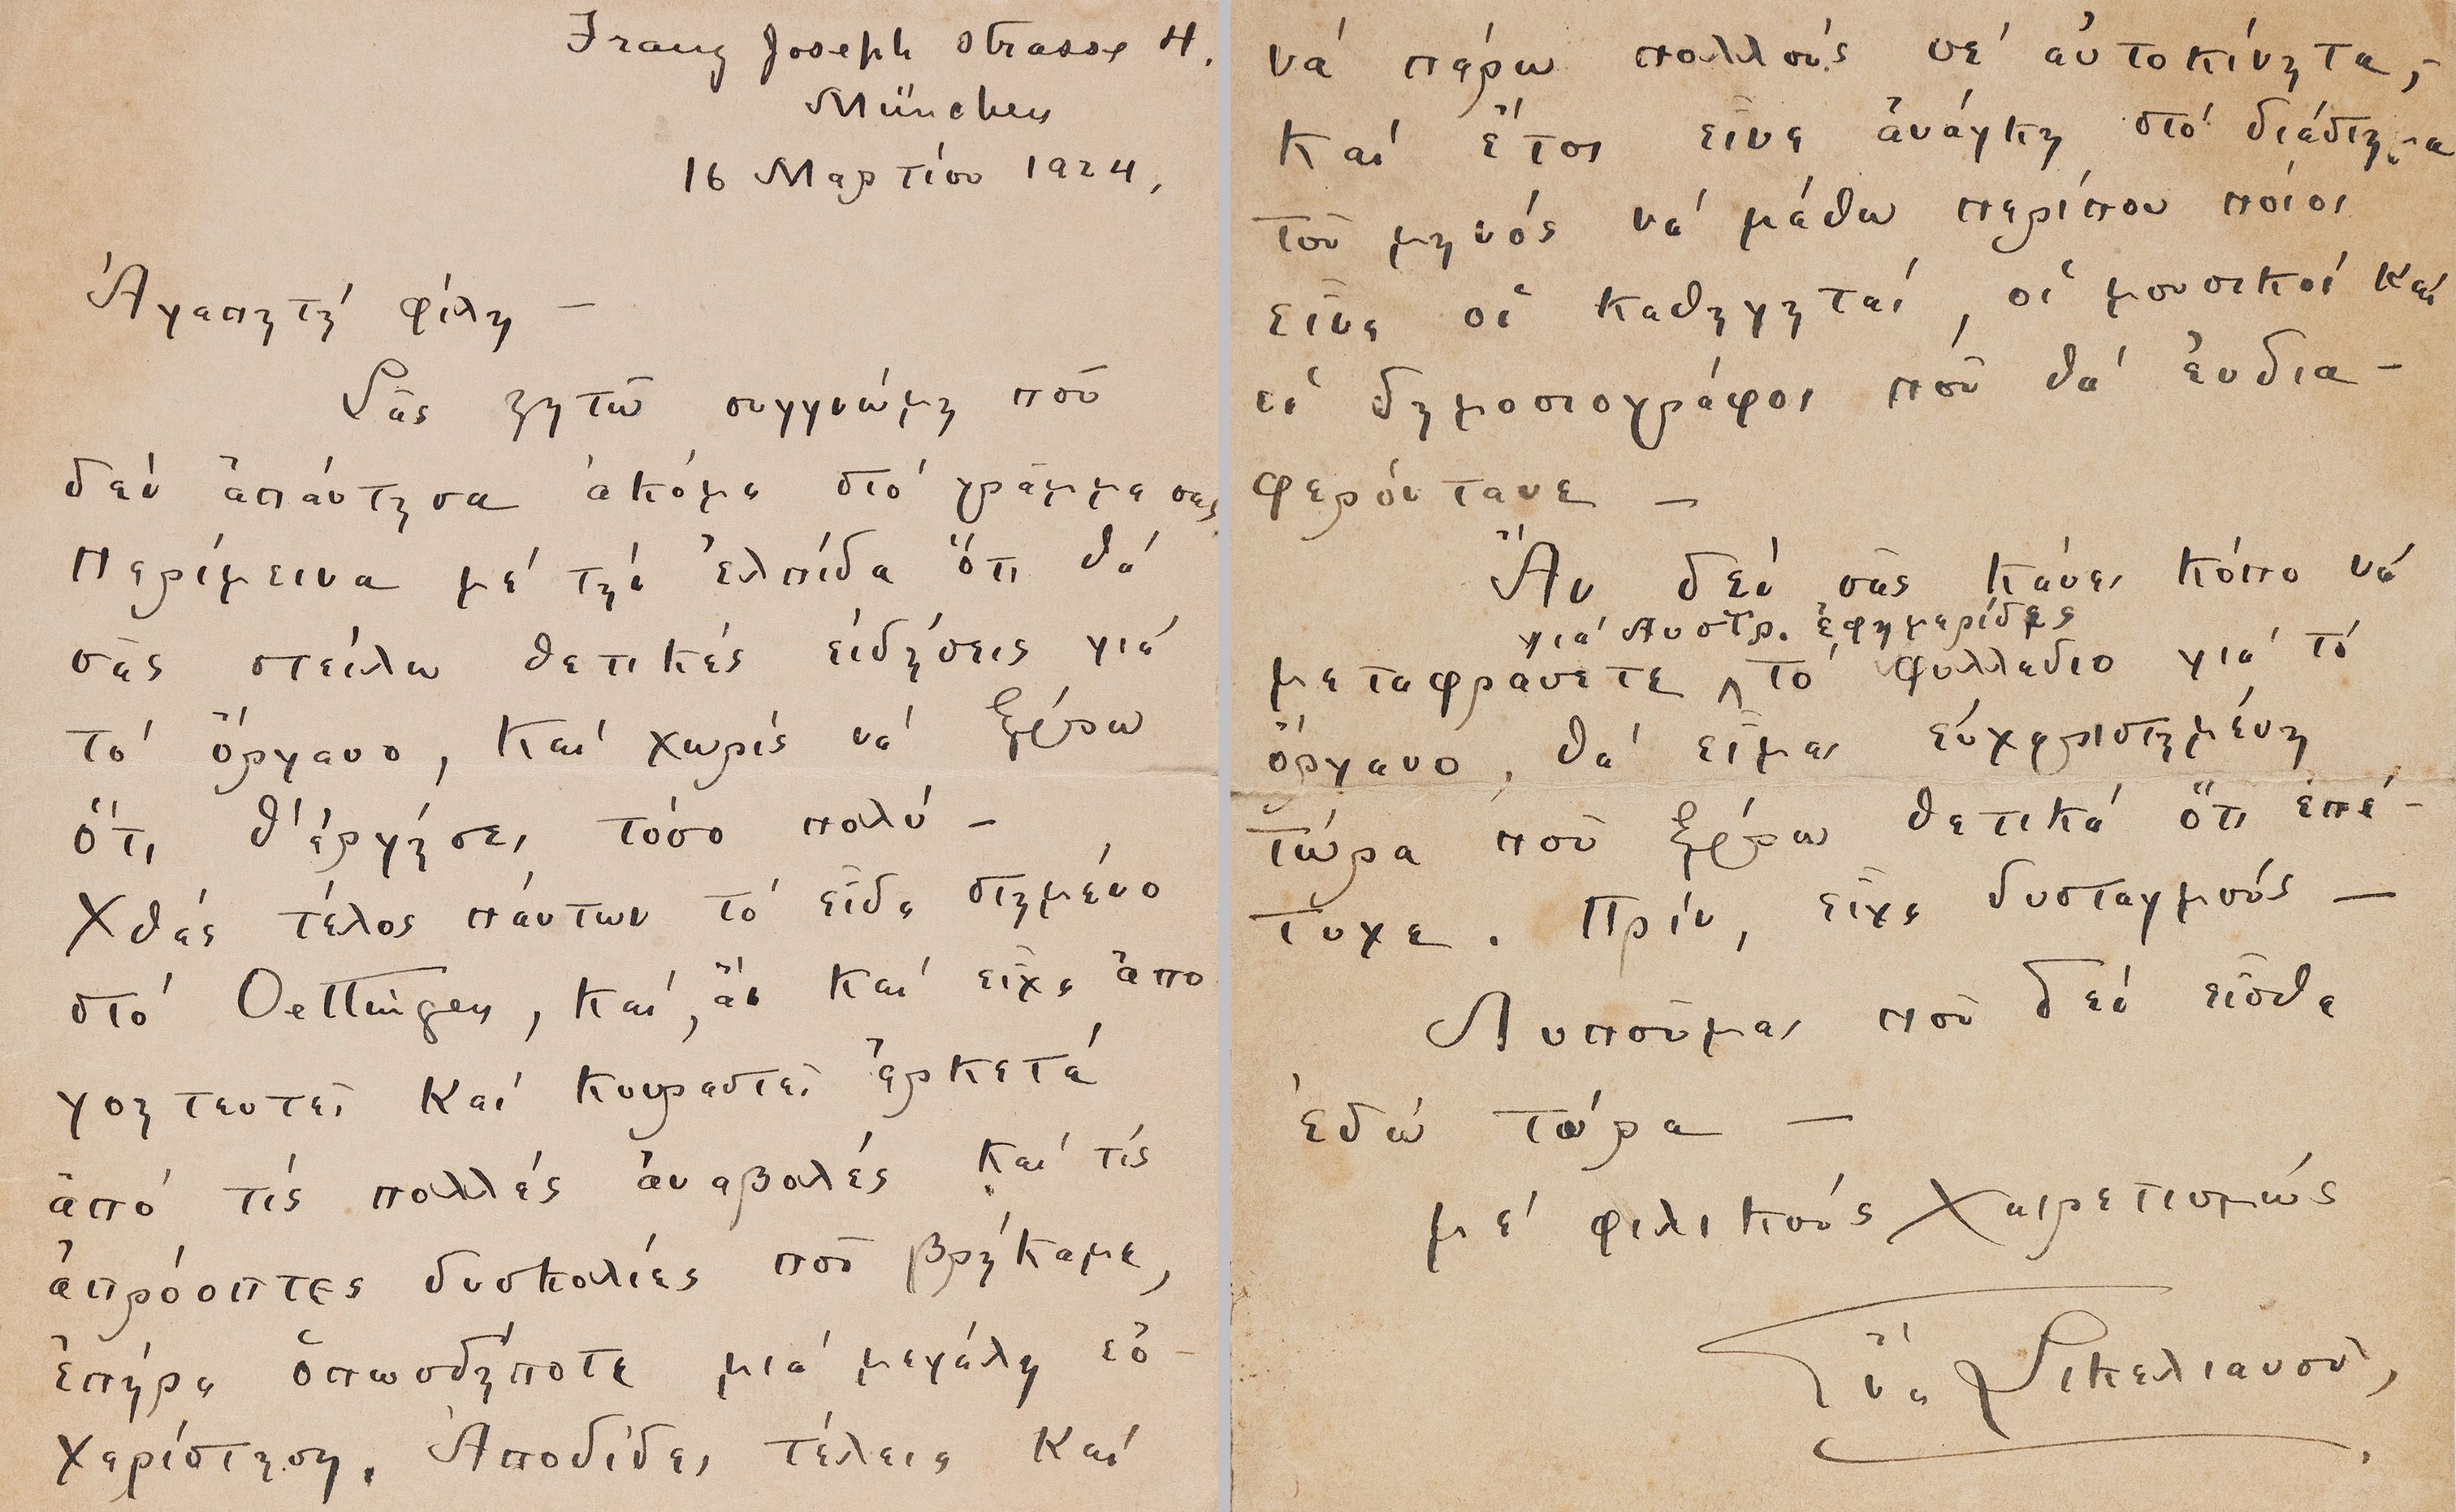 Franz Joseph Strasse 4.
München
16 Μαρτίου 1924.
Ἀγαπητή φίλη —
Σᾶς ζητῶ συγγνώμη ποῦ
δέν ἀπάντησα ἀκόμα στό γράμμα σας
Περίμεινα μέ τήν ἐλπίδα ὅτι θά
σᾶς στείλω θετικές εἰδήσεις γιά
τό ὄργανο, καί χωρίς νά ξέρω
ὅτι θ'ἀργήσει τόσο πολύ —
Χθές τέλος πάντων τό εἶδα στημένο
στό Oettingen, καί, ἄν καί εἶχα ἀπο
γοητευτεῖ καί κουραστεῖ ἀρκετά
ἀπό τίς πολλές ἀναβολές καί τίς
ἀπρόοπτες δυσκολίες ποῦ βρήκαμε,
ἐπήρα ὁπωσδήποτε μιά μεγάλη εὐ-
χαρίστηση. Ἀποδίδει τέλεια καί
νά πάρω πολλούς σέ αὐτοκίνητα,-
καί ἔτσι εἶνε ἀνάγκη στό διάστημα
τοῦ μηνός νά μάθω περίπου ποίοι
εἶνε οἱ καθηγηταί, οἱ μουσικοί καί
οἱ δημοσιογράφοι ποῦ θά ἐνδια-
φερόντανε —
Ἄν δέν σᾶς κάνει κόπο νά
γιά Αυστρ. ἐφημερίδες
μεταφράσετε ^ τό φυλλάδιο γιά τό
ὄργανο, θά εἶμαι εὐχαριστημένη
τώρα ποῦ ξέρω θετικά ὅτι ἐπέ-
τυχε. Πρίν, εἶχα δυσταγμούς —
Λυποῦμαι ποῦ δέν εἶσθε
ἐδώ τώρα —
μέ φιλικούς χαιρετισμούς
Εὔα Σικελιανοῦ,